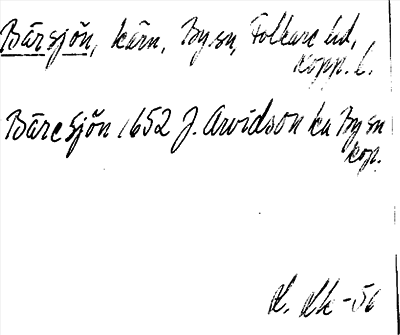 Bärsjön, kärn, By sn, Folkare hd,
Kopp. l.
Bäresjön 1652 J. Arvidson ka By sn
kop.
-56